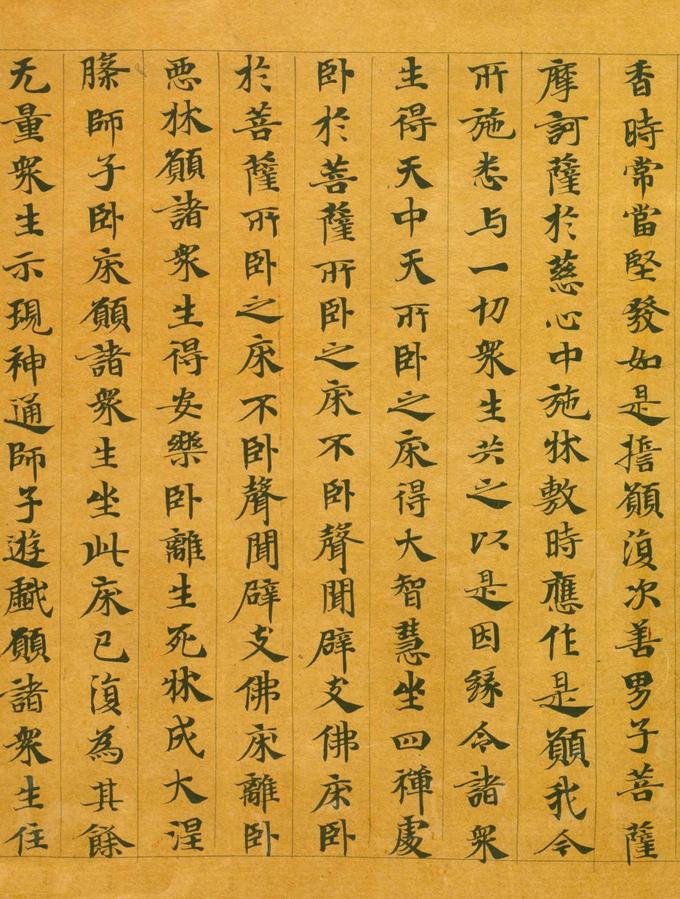 香時常當堅發如是誓願復次善男子菩薩
摩訶薩於慈心中施牀敷時應作是願我今
所施悉与一切衆生共之以是因緣令諸衆
生得天中天所卧之床得大智慧坐四禪處
卧於菩薩所卧之床不卧聲聞辟支佛床卧
於菩薩所卧之床不卧聲聞辟支佛床離卧
惡牀願諸衆生得安樂卧離生死牀成大涅
槃師子卧床願諸衆生坐此床已復為其餘
无量衆生示現神通師子遊戲願諸衆生住